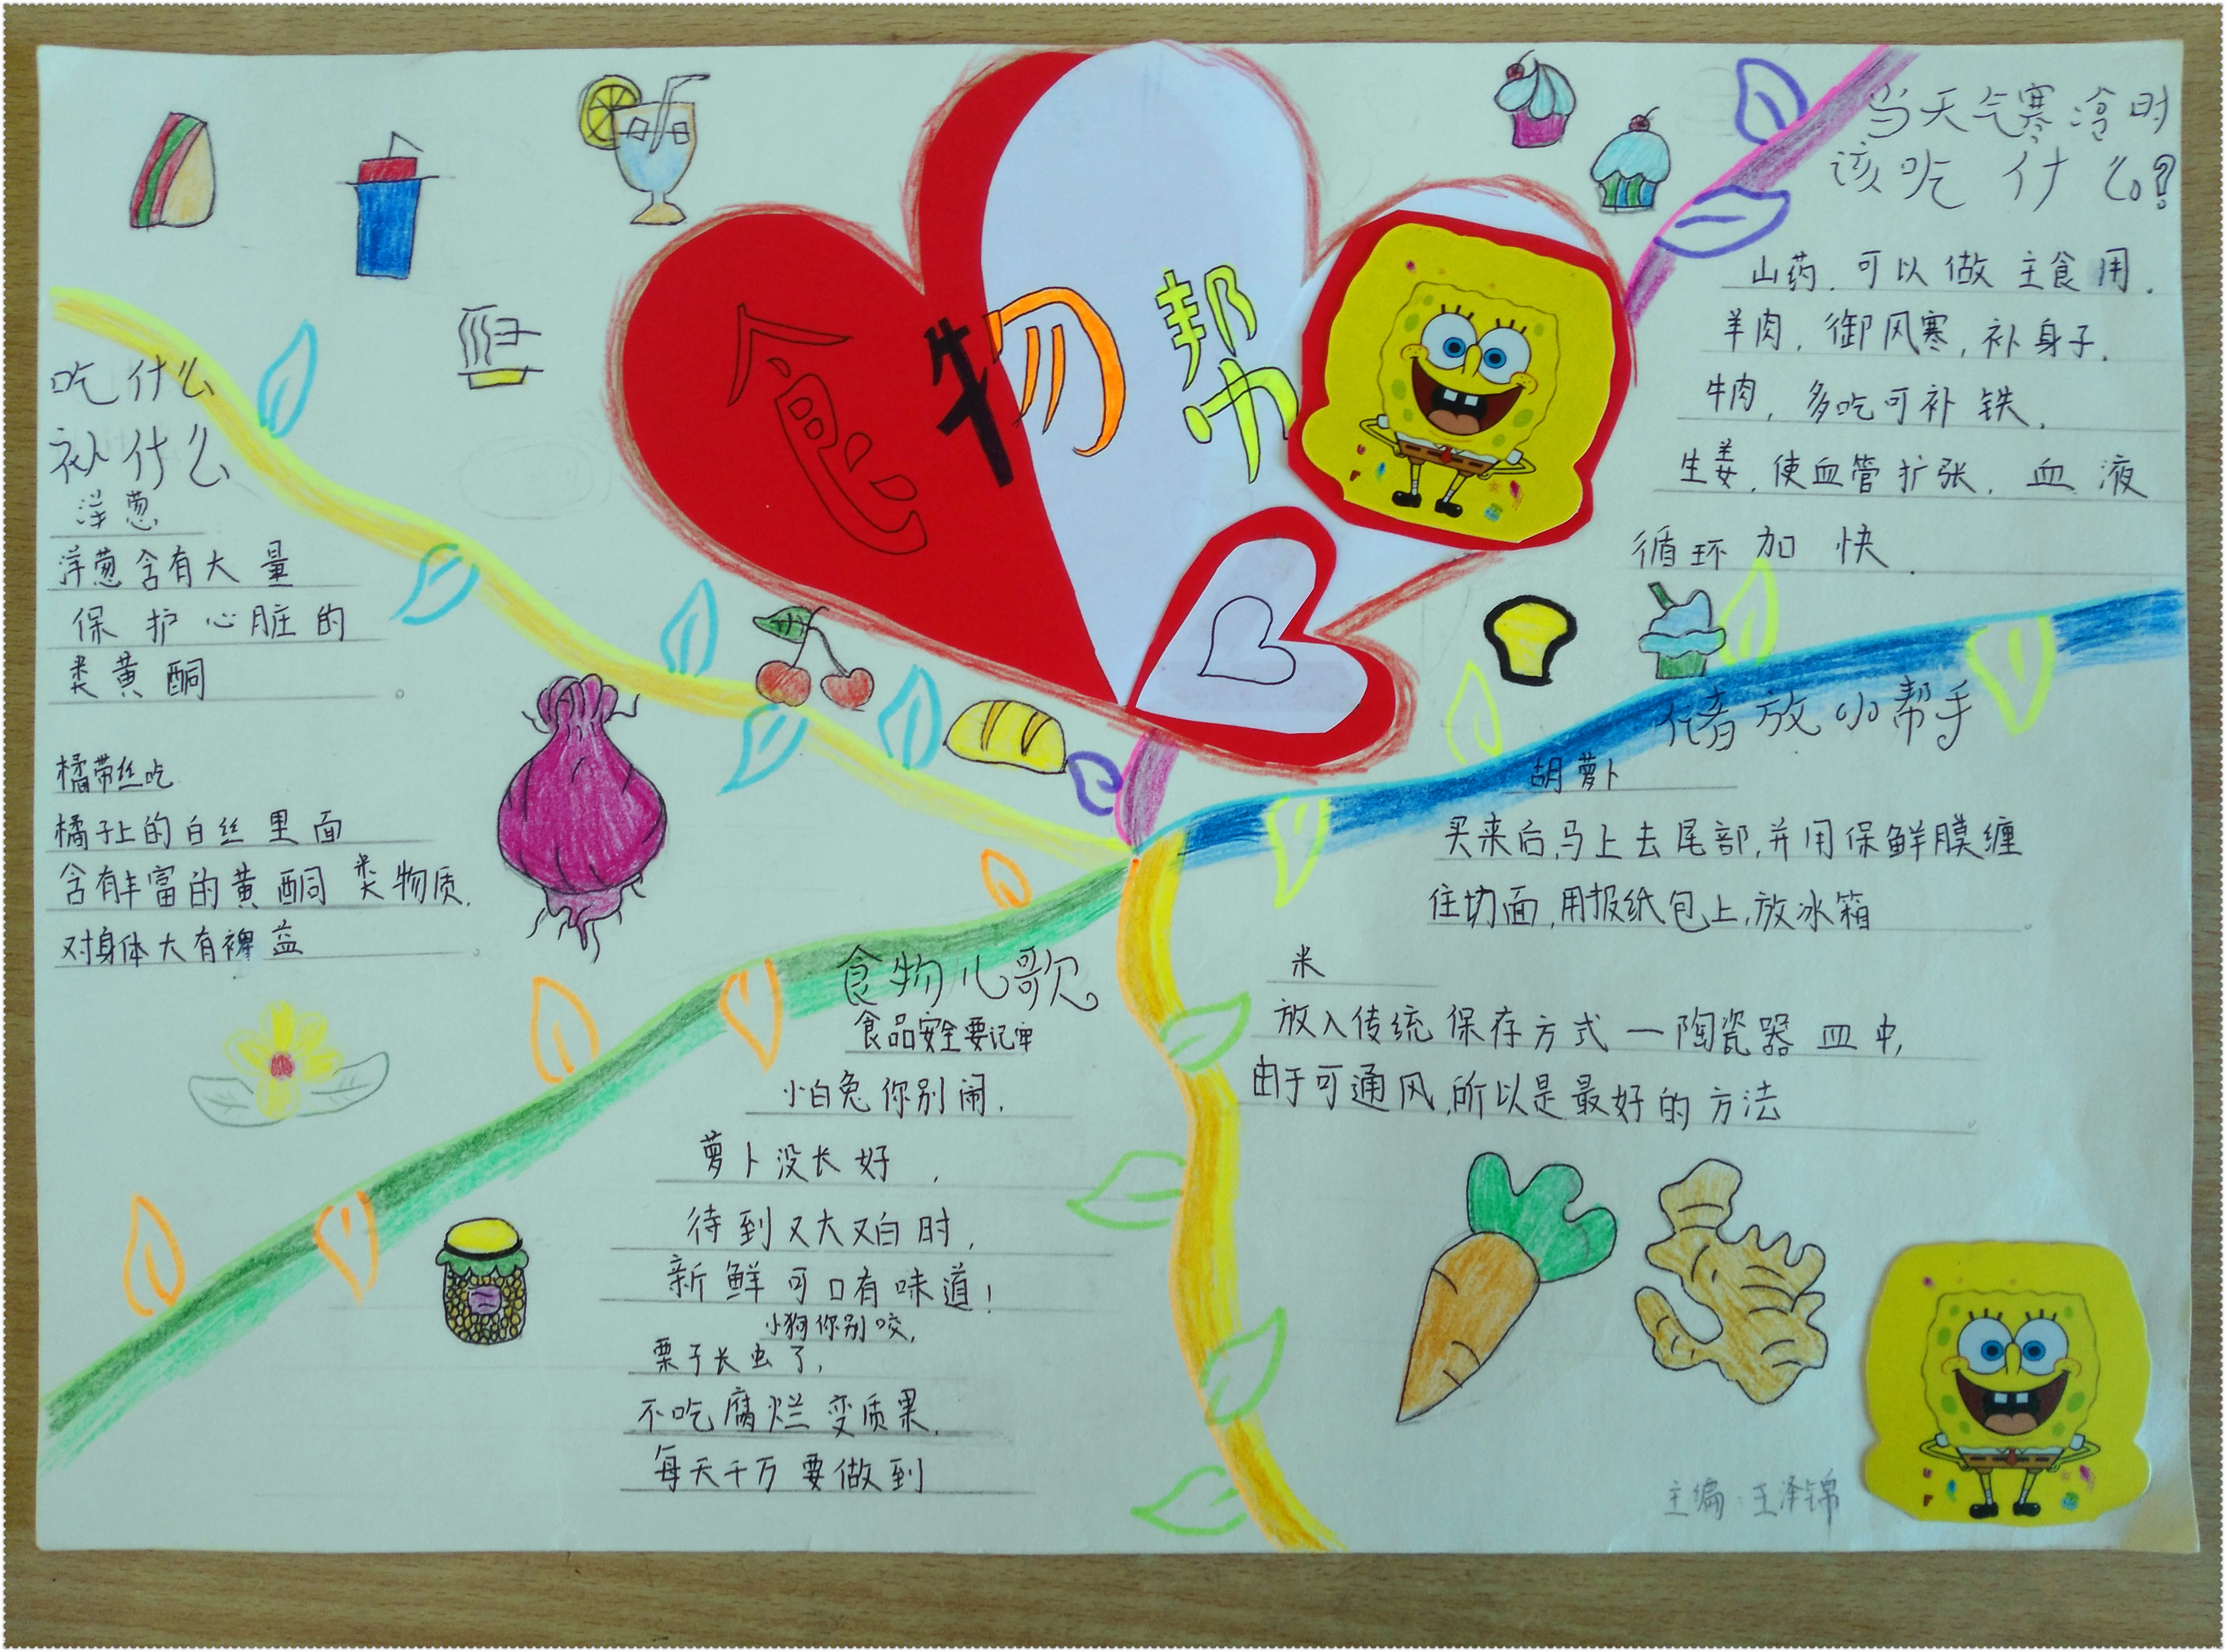 食物帮
吃什么
补什么
洋葱
洋葱含有大量
保护心脏的
类黄酮。
橘带丝吃
橘子上的白丝里面
含有丰富的黄酮类物质.
对身体大有裨益。
当天气寒冷时
该吃什么?
山药.可以做主食用.
羊肉,御风寒,补身子.
牛肉,多吃可补铁.
生姜,使血管扩张,血液
循环加快.
储放小帮手
胡萝卜
买来后,马上去尾部,并用保鲜膜缠
住切面,用报纸包上,放冰箱。
米
放入传统保存方式一陶瓷器皿中,
由于可通风,所以是最好的方法。
食物儿歌
食品安全要记牢
小白兔你别闹.
萝卜没长好,
待到又大又白时,
新鲜可口有味道!
小狗你别咬,
栗子长虫了,
不吃腐烂变质果.
每天千万要做到
主编:王泽锦